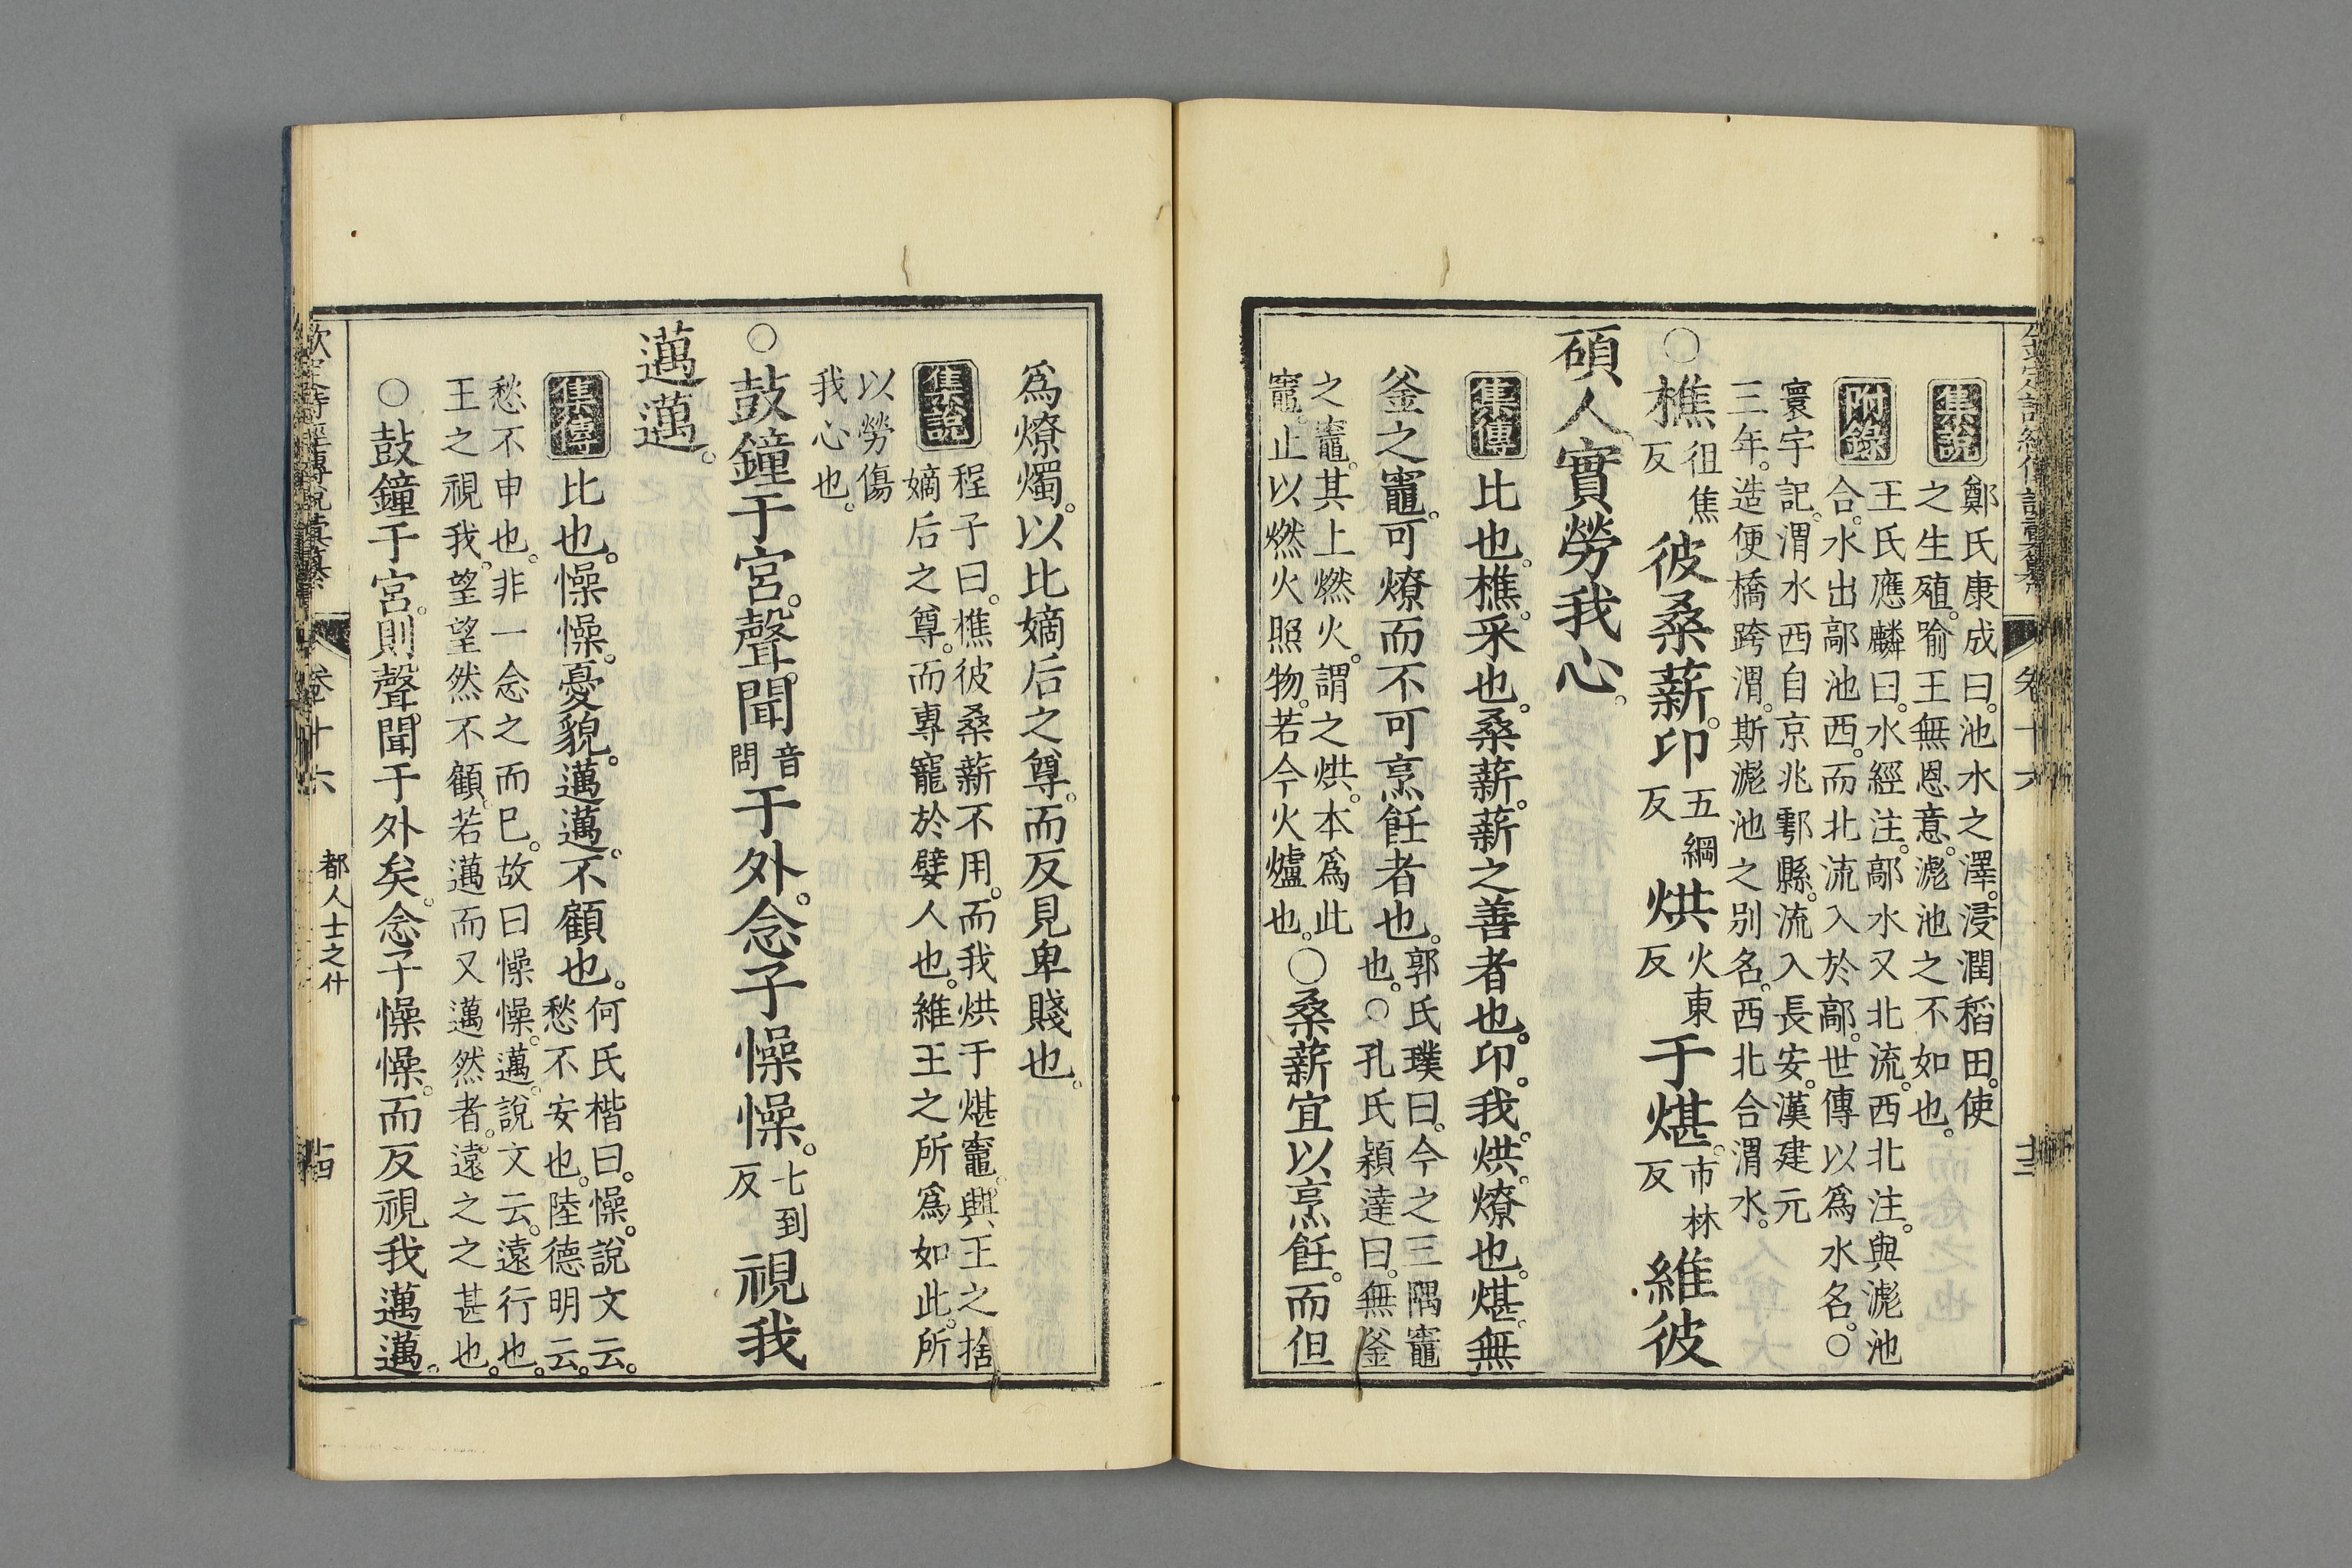 集說
鄭氏康成曰。池水之澤。浸潤稻田。使
之生殖。喻王無恩意。滮池之不如也。
附錄
王氏應麟曰。水經注。鄗水又北流。西北注。與滮池
合。水出鄗池西。而北流入於鄗。世傳以為水名。○
寰宇記。渭水西自京兆鄠縣。流入長安。漢建元
三年。造便橋跨渭。斯滮池之別名。西北合渭水。
○樵徂焦反彼桑薪。卬五綱反烘火東反于煁。市林反維彼
碩人。實勞我心。
集傳比也。樵。采也。桑薪。薪之善者也。卬。我。烘。燎也。煁。無
釜之竈。可燎而不可烹飪者也。郭氏璞曰。今之三隅竈也。○孔氏穎達曰。無釜
之竈。其上燃火。謂之烘。本為此
竈。止以燃火照物。若今火爐也。○桑薪宜以烹飪。而但
卷十六
十三
為燎燭。以比嫡后之尊。而反見卑賤也。
集說
程子曰。樵彼桑薪不用。而我烘于煁竈。興王之捨
嫡后之尊。而專寵於嬖人也。維王之所為如此。所
以勞傷
我心也。
○鼓鐘于宮。聲聞音問于外。念子懆懆。七到反視我
邁邁。
集傳比也。懆懆。憂貌。邁邁。不顧也。何氏楷曰。懆。說文云。愁不安也。陸德明云。
愁不申也。非一念之而已。故曰懆懆。邁。說文云。遠行也。
王之視我。望望然不顧。若邁而又邁然者。遠之之甚也。
○鼓鐘于宮。則聲聞于外矣。念子懆懆。而反視我邁邁。
欽定詩經傳說彙纂
卷十六
都人士之什
十四